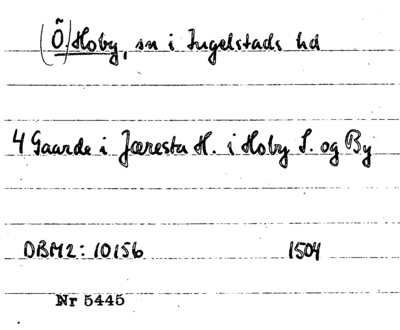 (Ö) Hoby, sn i Ingelstads hd
4 Gaarde i Jæresta H. i Hoby S. og By
DBM2: 10156 1504
Nr 5445